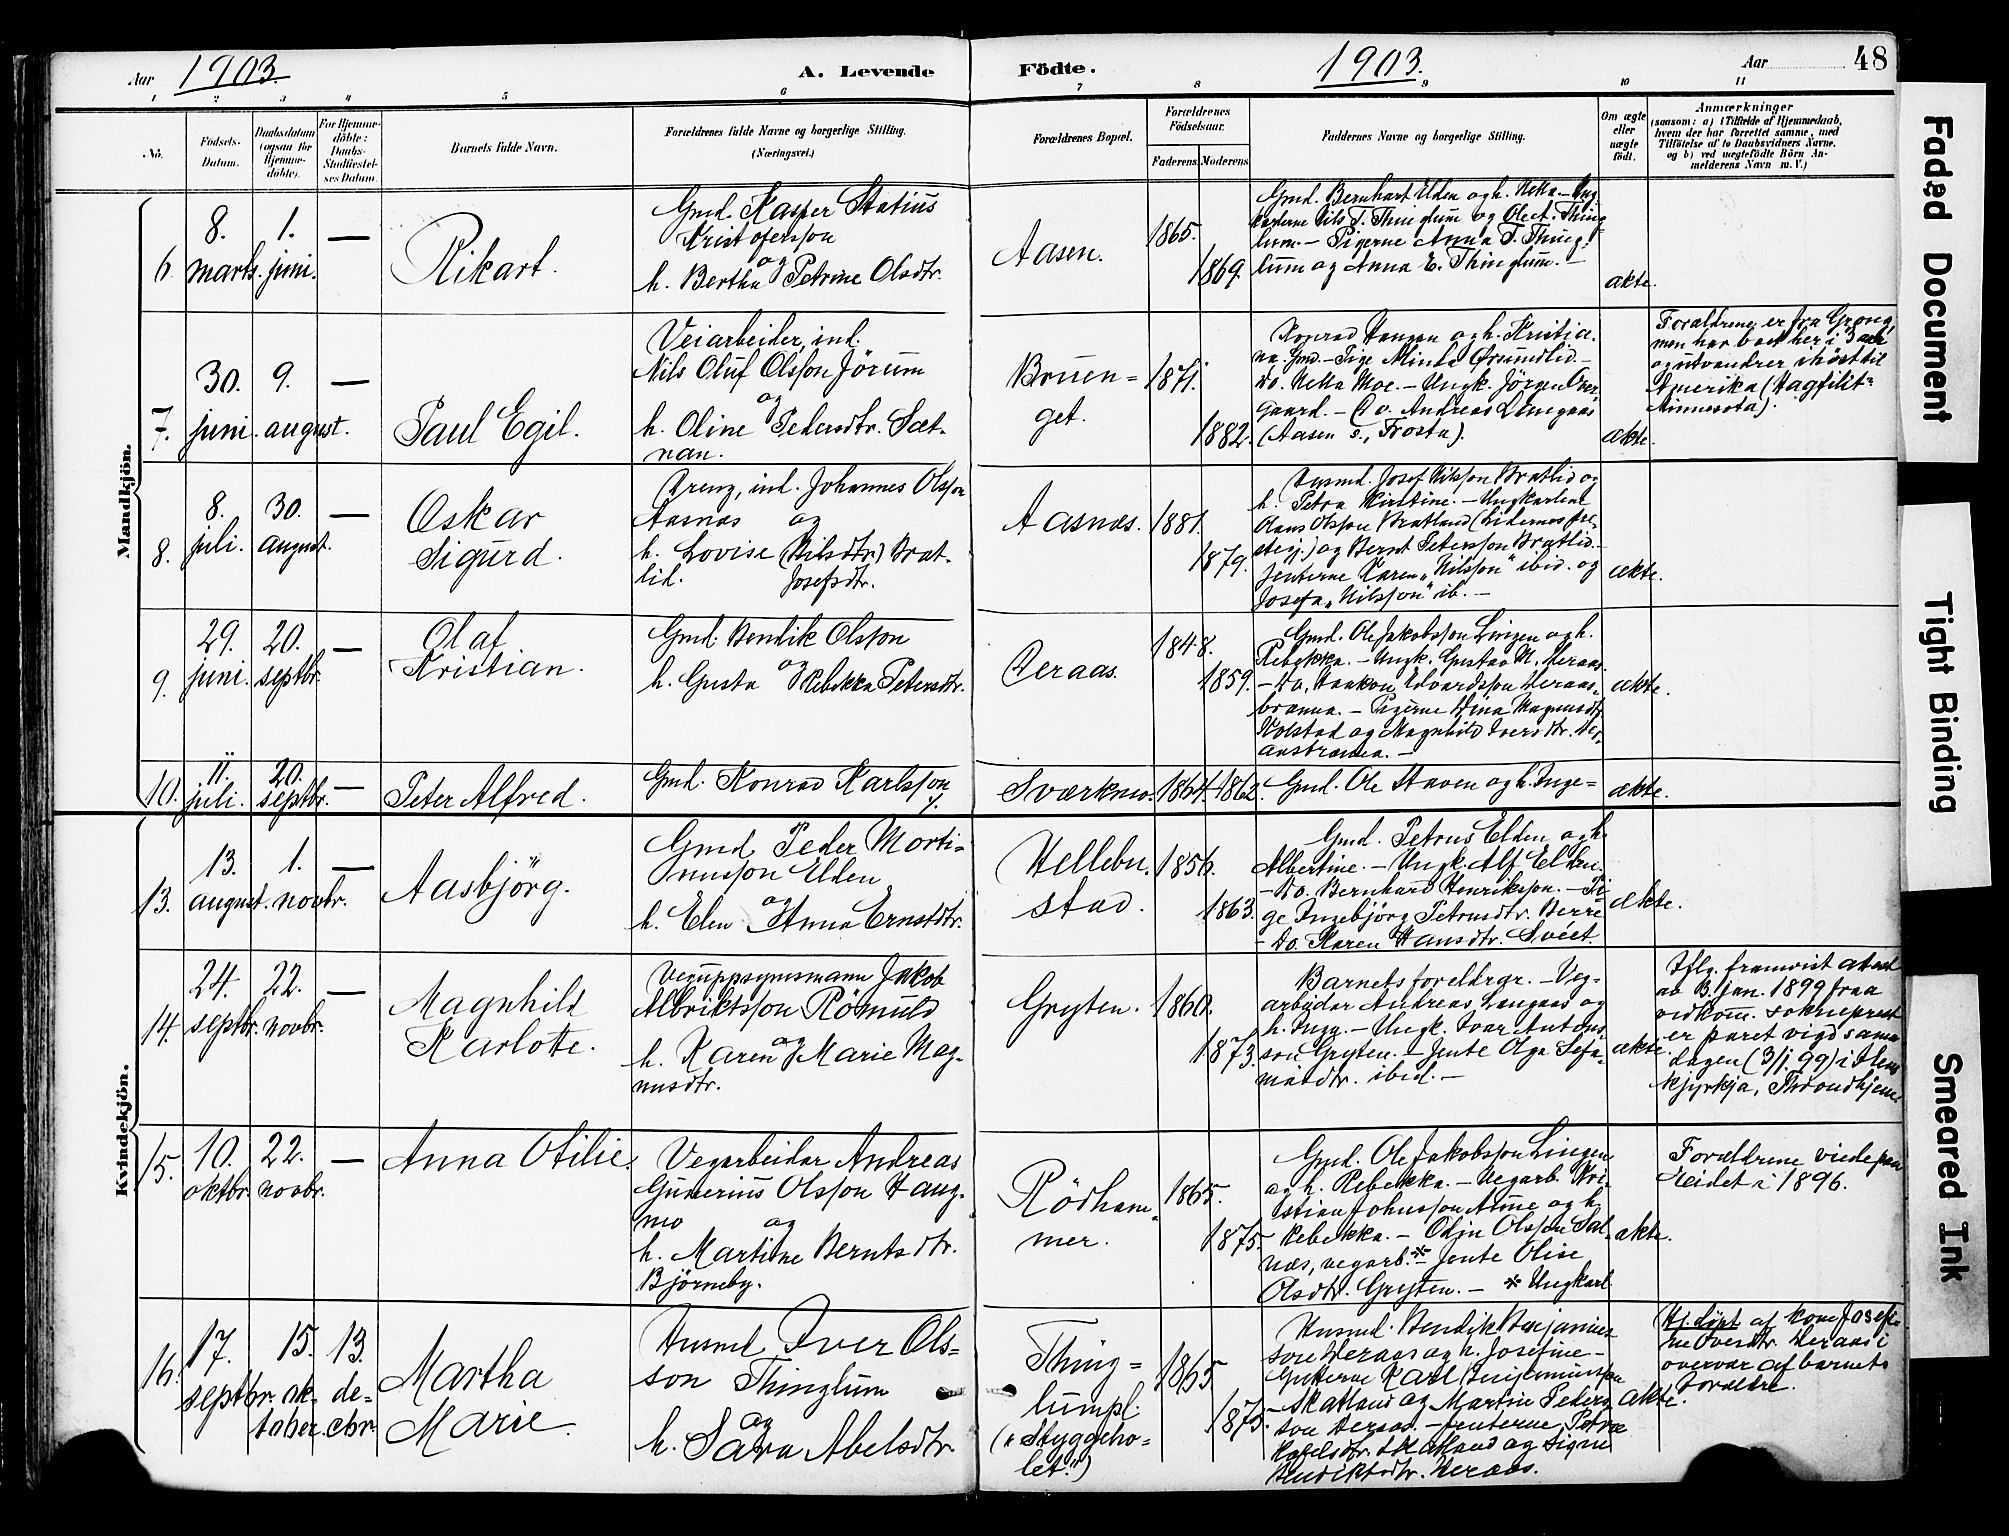 Aar 1903. A. Levende Födte. 1903. Aar 48
1 2 3 4 5 6 7 8 9 10 11
No.
Födsels-Datum.
Daabsdatum (ogsaa for Hjemmedöbte).
For Hjemmedöbte: Daabs-Stadfæstelses Datum.
Barnets fulde Navn.
Forældrenes fulde Navne og borgerlige Stilling.
(Næringsvei.)
Forældrenes Bopæl.
Forældrenes Födselsaar.
Faderens. Moderens.
Faddernes Navne og borgerlige Stilling.
Om ægte eller uægte födt.
Anmærkninger
(saasom: a) i Tilfælde af Hjemmedaab,
hvem der har forrettet samme, med
Tilföielse af to Daabsvidners Navne,
og b) ved uægtefödte Börn An-
melderens Navn m. V.)
Mandkjön.
6. 8. marts. 1. juni. —
Rikart.
Gmd. Kasper Statius
Kristofersson
og
h. Bertha Petrine Olsdtr.
Aasen.
1865.
1869.
Gmd. Bernhart Elden og h. Meka. — Ung-
karlerne Nils T. Thinglum og Ole A. Thing-
lum. — Pigerne Anna T. Thing-
lum og Anna E. Thinglum. —
ækte.
7. 30. juni. 9. august. —
Paul Egil.
Veiarbeider, ind.
Nils Oluf Olsson Jörum
og
h. Oline Pedersdtr. Sæt-
nan.
Bruen-
get.
1871.
1882.
Konrad Hansen og h. Kristia-
na. Gmd. — Pige Minda Grundlid —
Do. Meka Moe. — Ungk. Jörgen Over-
gaard. — Do. Andreas Langaas
(Aasen s., Frosta).
ækte.
Forældrene er fra Grong,
men har boet her i 3 aar
og utvandrer i höst til
Amerika
Minnesota).
8. 8. juli. 30. august. —
Oskar
Sigurd.
Dreng, ind. Johannes Olsson
Aasnæs og
h. Lovise (Nilsdtr.) Brat-
lid. Josefsdtr.
Aasnæs.
1881.
1879.
Husmd. Josef Nilsson Bratlid og
h. Petra Kirstine. — Ungkarlene
Hans Olsson Bratland
og Bernt Petersson Bratlid. —
Jenterne Karen „Nilsson“ ibid. og
Josefa „Nilsson“ ib. —
ækte.
9. 29. juni. 20. septbr. —
Olaf
Kristian.
Gmd. Bendik Olsson
og
h. Gusta Rebekka Petersdtr.
Deraas.
1848.
1859.
Gmd. Ole Jakobsson Lingen og h.
Rebekka. — Ungk. Gustav M. Deraas.
— Do. Haakon Edvardsson Deraas-
branna. — Pigerne Dina Magnusdtr.
Kolstad og Magnhild Iversdtr. De-
aasbranna. —
ækte.
10. 11. juli. 20. septbr. —
Peter Alfred.
Gmd. Konrad Karlsson
%.
Sværkmo.
1864 1862.
Gmd. Ole Staven og h. Inge-
ækte.
Kvindekjön.
13. 13. august. 1. novbr. —
Aasbjörg.
Gmd. Peder Morti-
nusson Elden
og
h. Elen Anna Ernstdtr.
Hellebu-
stad.
1856.
1863.
Gmd. Petrus Elden og h.
Albertine. — Ungk. Alf Elden.
— Do. Bernhard Henriksson. — Pi-
ge Ingebjörg Petrusdtr. Berre
— Do. Karen Hansdtr. Sveet.
ækte.
14. 24. septbr. 22. novbr. —
Magnhild
Karlotte.
Veguppsynsmann Jakob
Albriktsson Römuld
og
h. Karen Marie Mag-
nusdtr.
Gryten.
1860.
1873.
Barnets foreldrar. — Veg-
arbeidar Andreas Langaas og
h. Inga. — Ungk. Ivar Antons-
son Gryten. — Jente Olga
ibid. —
ækte.
Iflg. framvist atest
av 3. jan. 1899 fraa
vedkom. sokneprest
er paret vigd sama
dagen (3/1. 99) i
kjyrkja, Throndhjem.
15. 10. oktbr. 22. novbr. —
Anna Otilie.
Vegarbeidar Andreas
Gunerius Olsson Haug-
mo og
h. Martine Berntsdtr.
Björneby.
Rödham-
mer.
1865.
1875.
Gmd. Ole Jakobsson Lingen
og h. Rebekka. — Vegarb. Kri-
stian Johnsson Aune og h.
Rebekka. — Odin Olsson Sal-
næs, vegarb.* — Jente Olise
Olsdtr. Gryten. — * Ungkarl
ækte.
Forældrene viede paa
Meidet i 1896.
16. 17. septbr. 15. oktober. 13. decbr.
Martha
Marie.
Husmd. Iver Ols-
son Thinglum
og
h. Sara Abelsdtr.
Thing-
lumpl.
(„Styggeho-
let.“)
1865
1875.
Husmd. Bendik Benjamins-
son Deraas og h. Josefine —
Gutterne Karl Benjaminsson
Skatland og Martin Peders-
son Deraas. — Jenterne Petra
Skatland og Signe
Bendiktsdtr. Deraas.
ækte.
Hj.döpt af kone Josefi-
ne Oversdtr. Deraas i
overvær af barnets
forældre.
Faded Document
Tight Binding
Smeared Ink